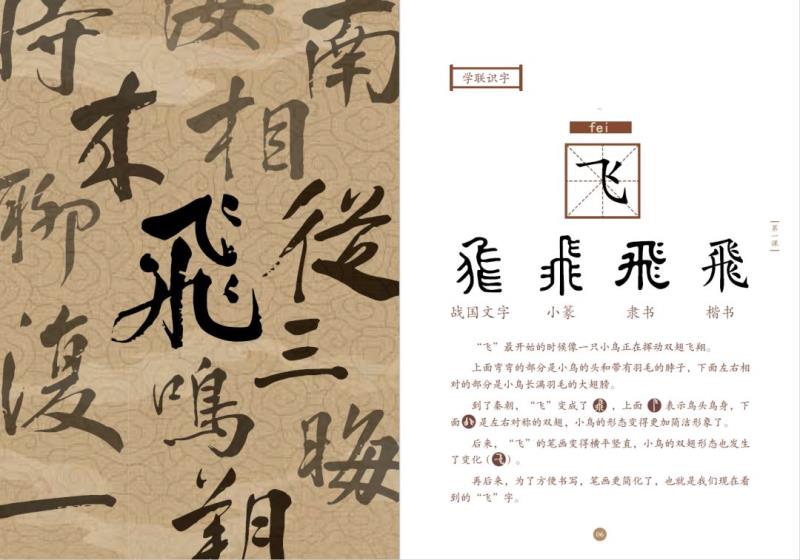 南
相
聊
從
飛
三
復
鳴
晦
一
翔
学联识字
fei
飞
飛 飛
战国文字 小篆 隶书 楷书
第一课
“飞”最开始的时候像一只小鸟正在挥动双翅飞翔。
上面弯弯的部分是小鸟的头和带有羽毛的脖子,下面左右相
对的部分是小鸟长满羽毛的大翅膀。
到了秦朝,“飞”变成了,上面表示鸟头鸟身,下
面是左右对称的双翅,小鸟的形态变得更加简洁形象了。
后来,“飞”的笔画变得横平竖直,小鸟的双翅形态也发生
了变化()。
再后来,为了方便书写,笔画更简化了,也就是我们现在看
到的“飞”字。
06